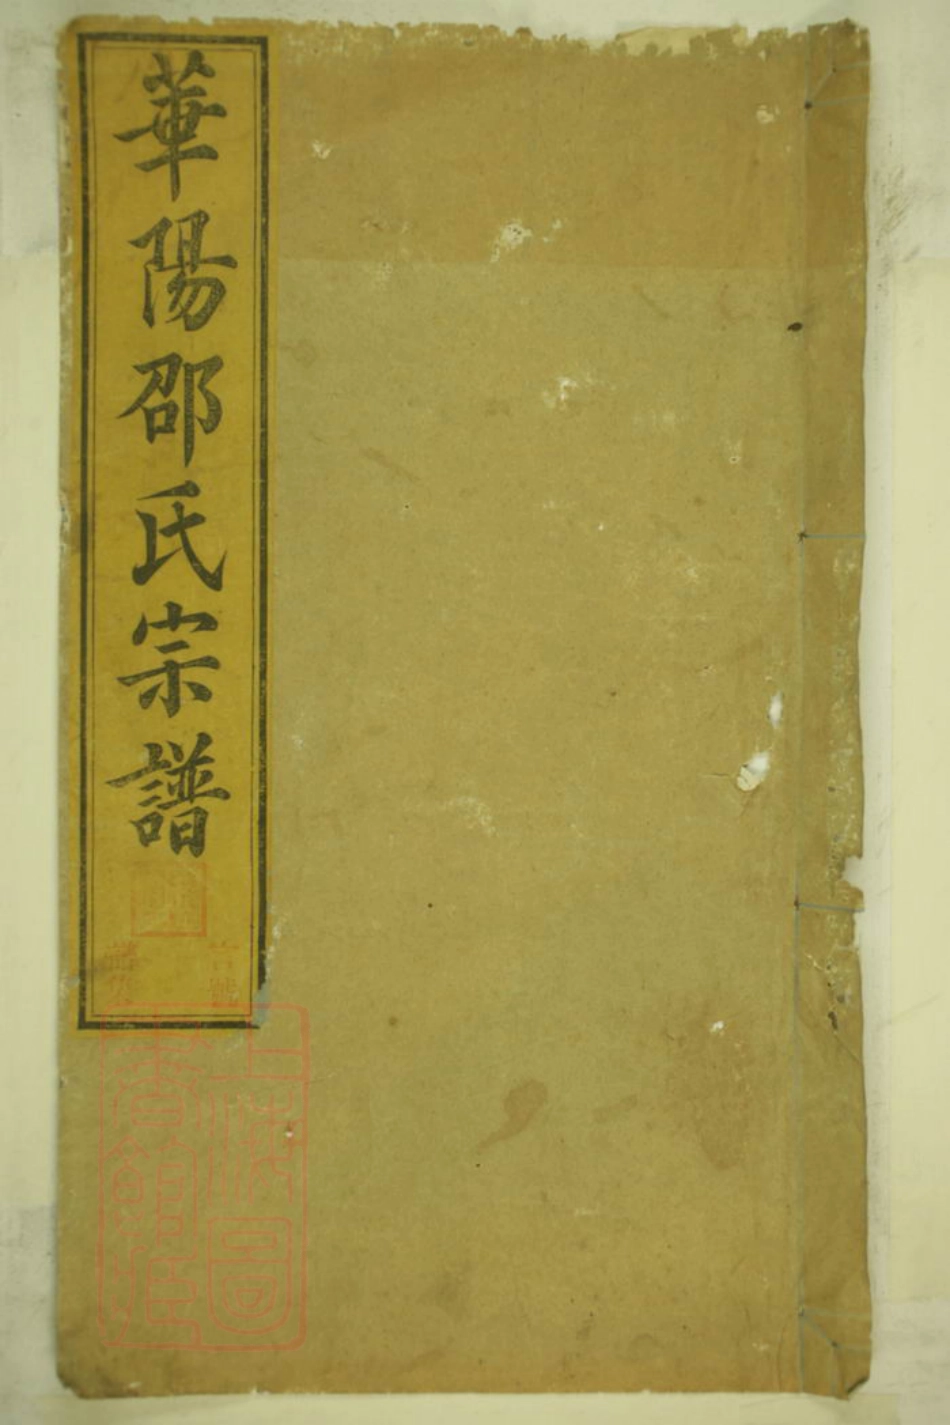 華陽邵氏宗譜
上海圖
書館藏